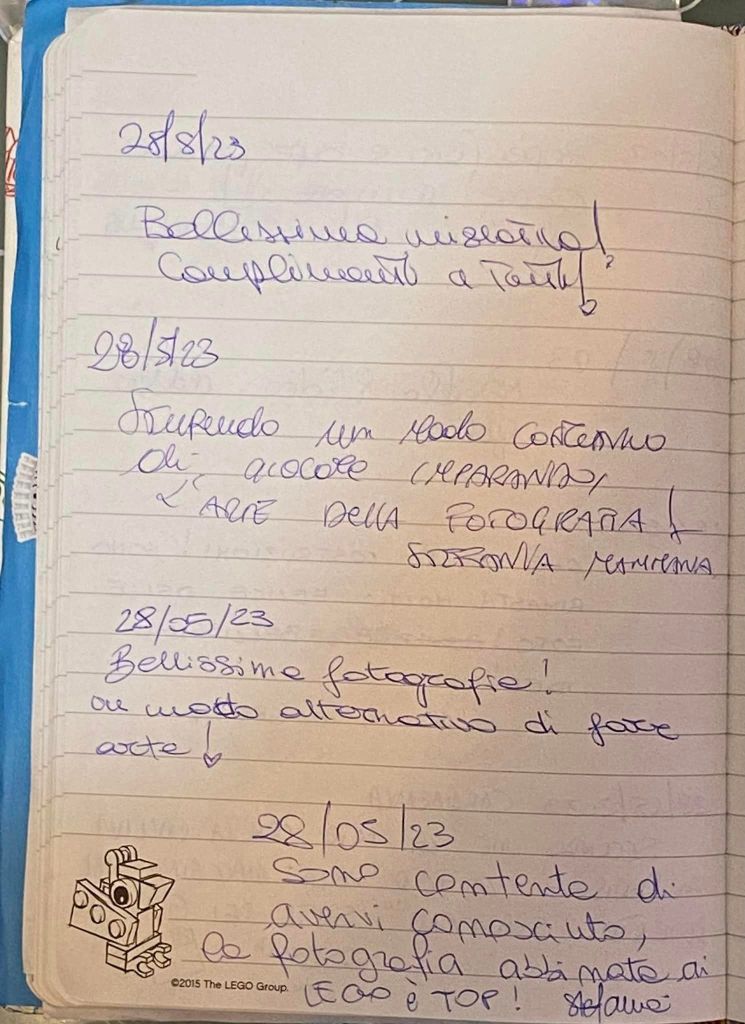 28/8/23
Bellissima mostra!
Complimenti a tutti!
28/5/23
Stupendo un modo
di giocare IMPARANDO
L'ARTE DELLA FOTOGRAFIA!
STEFANIA MAMMANA
28/05/23
Bellissime fotografie!
un modo alternativo di fare
arte!
28/05/23
Sono contente di
avervi conosciuto,
la fotografia abbinate ai
LEGO è TOP!
©2015 The LEGO Group.